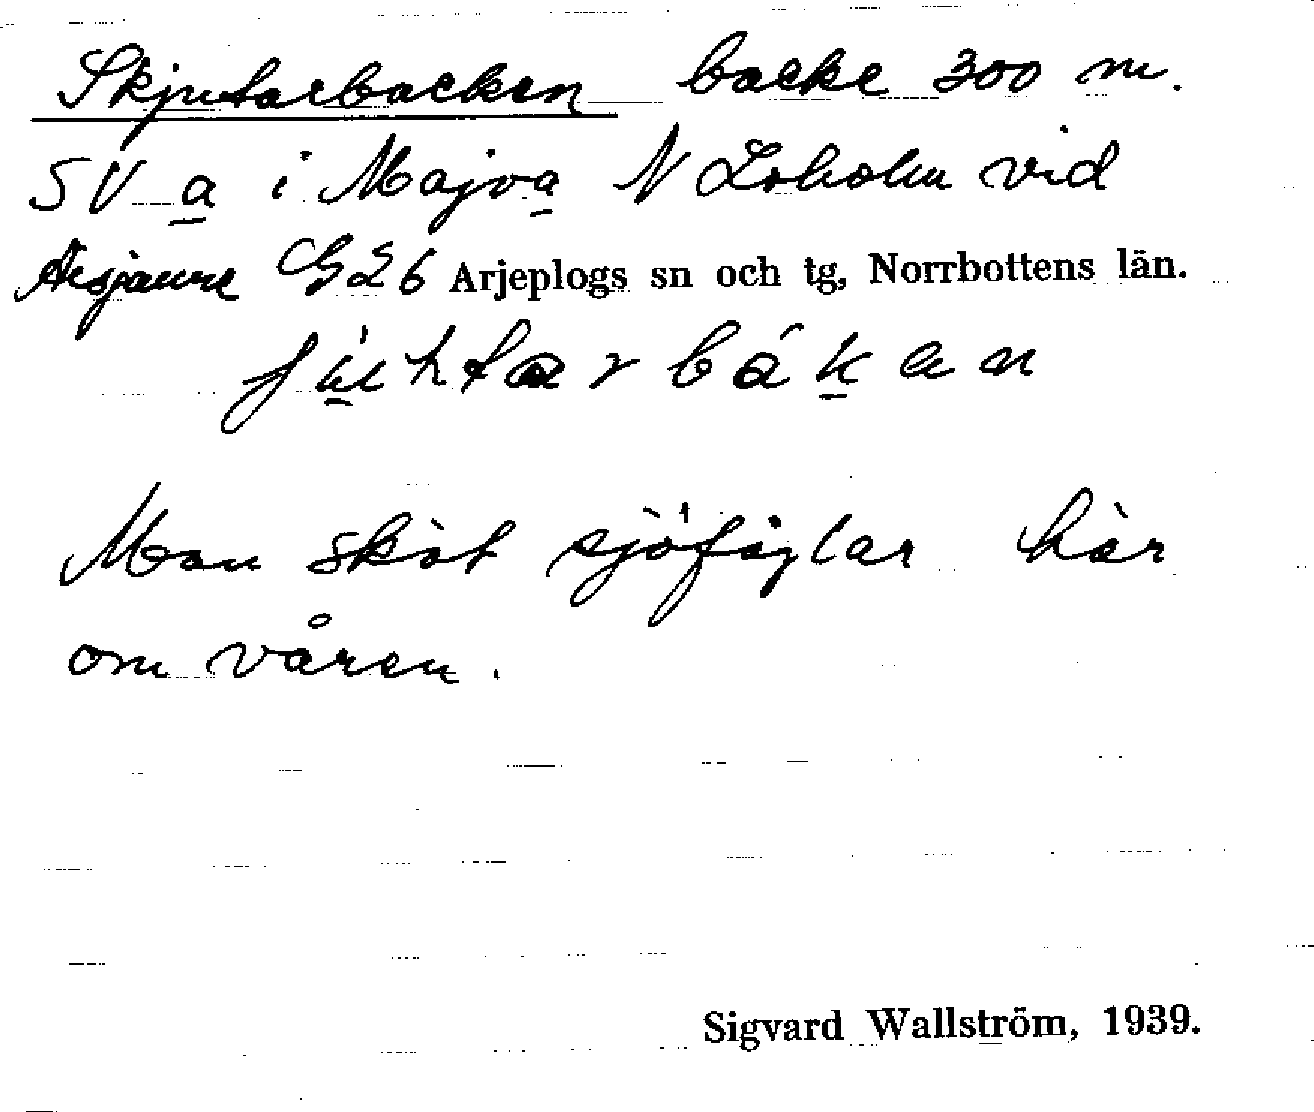 Skjutarbacken backe 300 m.
SV a i Majva N Loholm vid
G26 Arjeplogs sn och tg, Norrbottens län.
Man sköt sjöfåglar här
om våren.
Sigvard Wallström, 1939.